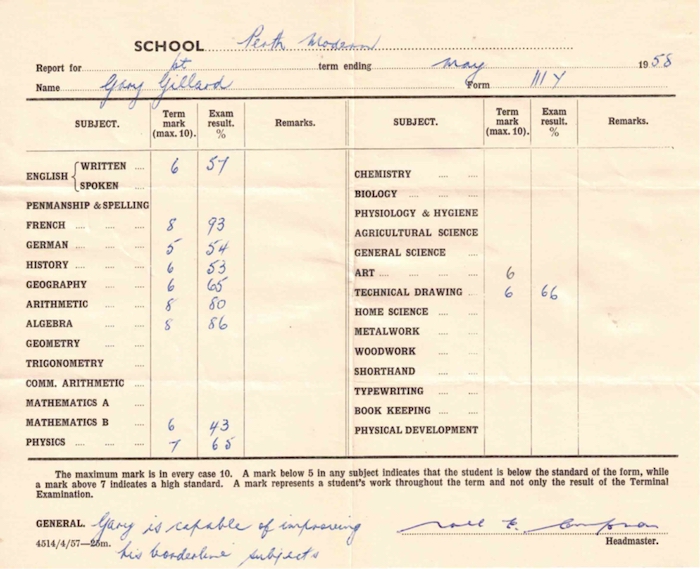 SCHOOL Perth Modern
Report for 1st term ending May 1958
Name Gary Gillard Form III Y
SUBJECT. Term mark (max. 10). Exam result. % Remarks. SUBJECT. Term mark (max. 10). Exam result. % Remarks.
ENGLISH { WRITTEN .... 6 57
SPOKEN ....
CHEMISTRY ....
BIOLOGY ....
PENMANSHIP & SPELLING
PHYSIOLOGY & HYGIENE
FRENCH .... .... 8 93
AGRICULTURAL SCIENCE
GERMAN .... .... 5 54
GENERAL SCIENCE ....
HISTORY .... .... 6 53
ART .... .... .... 6
GEOGRAPHY .... .... 6 65
TECHNICAL DRAWING .... 6 66
ARITHMETIC .... .... 8 80
HOME SCIENCE .... ....
ALGEBRA .... .... 8 86
METALWORK .... ....
GEOMETRY .... ....
WOODWORK .... ....
TRIGONOMETRY ....
SHORTHAND .... ....
COMM. ARITHMETIC ....
TYPEWRITING .... ....
MATHEMATICS A ....
BOOK KEEPING .... ....
MATHEMATICS B .... 6 43
PHYSICAL DEVELOPMENT
PHYSICS .... .... .... 7 65
The maximum mark is in every case 10. A mark below 5 in any subject indicates that the student is below the standard of the form, while
a mark above 7 indicates a high standard. A mark represents a student's work throughout the term and not only the result of the Terminal
Examination.
GENERAL. Gary is capable of improving
his borderline subjects
4514/4/57—25m.
Headmaster.